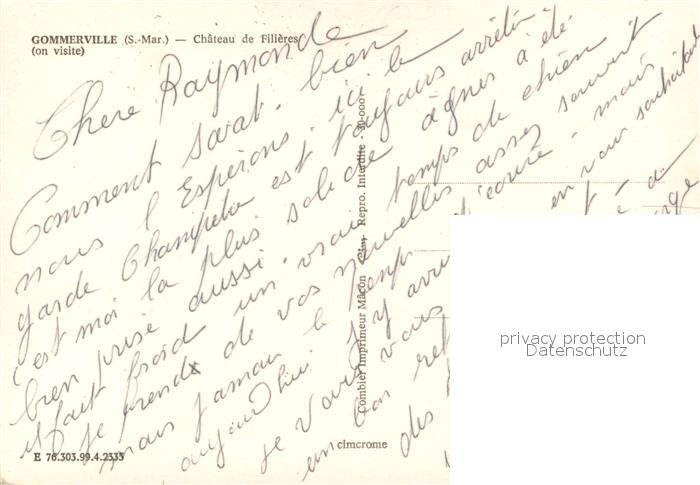 GOMMERVILLE (S.-Mar.) — Château de Fillères
(on visite)
Chère Raymonde
Comment savat. bien
nous l'Espérons, ici le
garde Champetre est toujours arrêté
c'est moi la plus solide agnes a été
bien prise aussi.
il fait froid un vrai temps de chien
je prends de vos nouvelles assez souvent
mais jamais le temps d'ecrire - mais
aujourd'hui j'y arrive
je vous en vous souhaitant
un bon
des
Combier Imprimeur Mâcon
Repro. Interdite
cimcrome
E 76.303.99.4.2333
privacy protection
Datenschutz